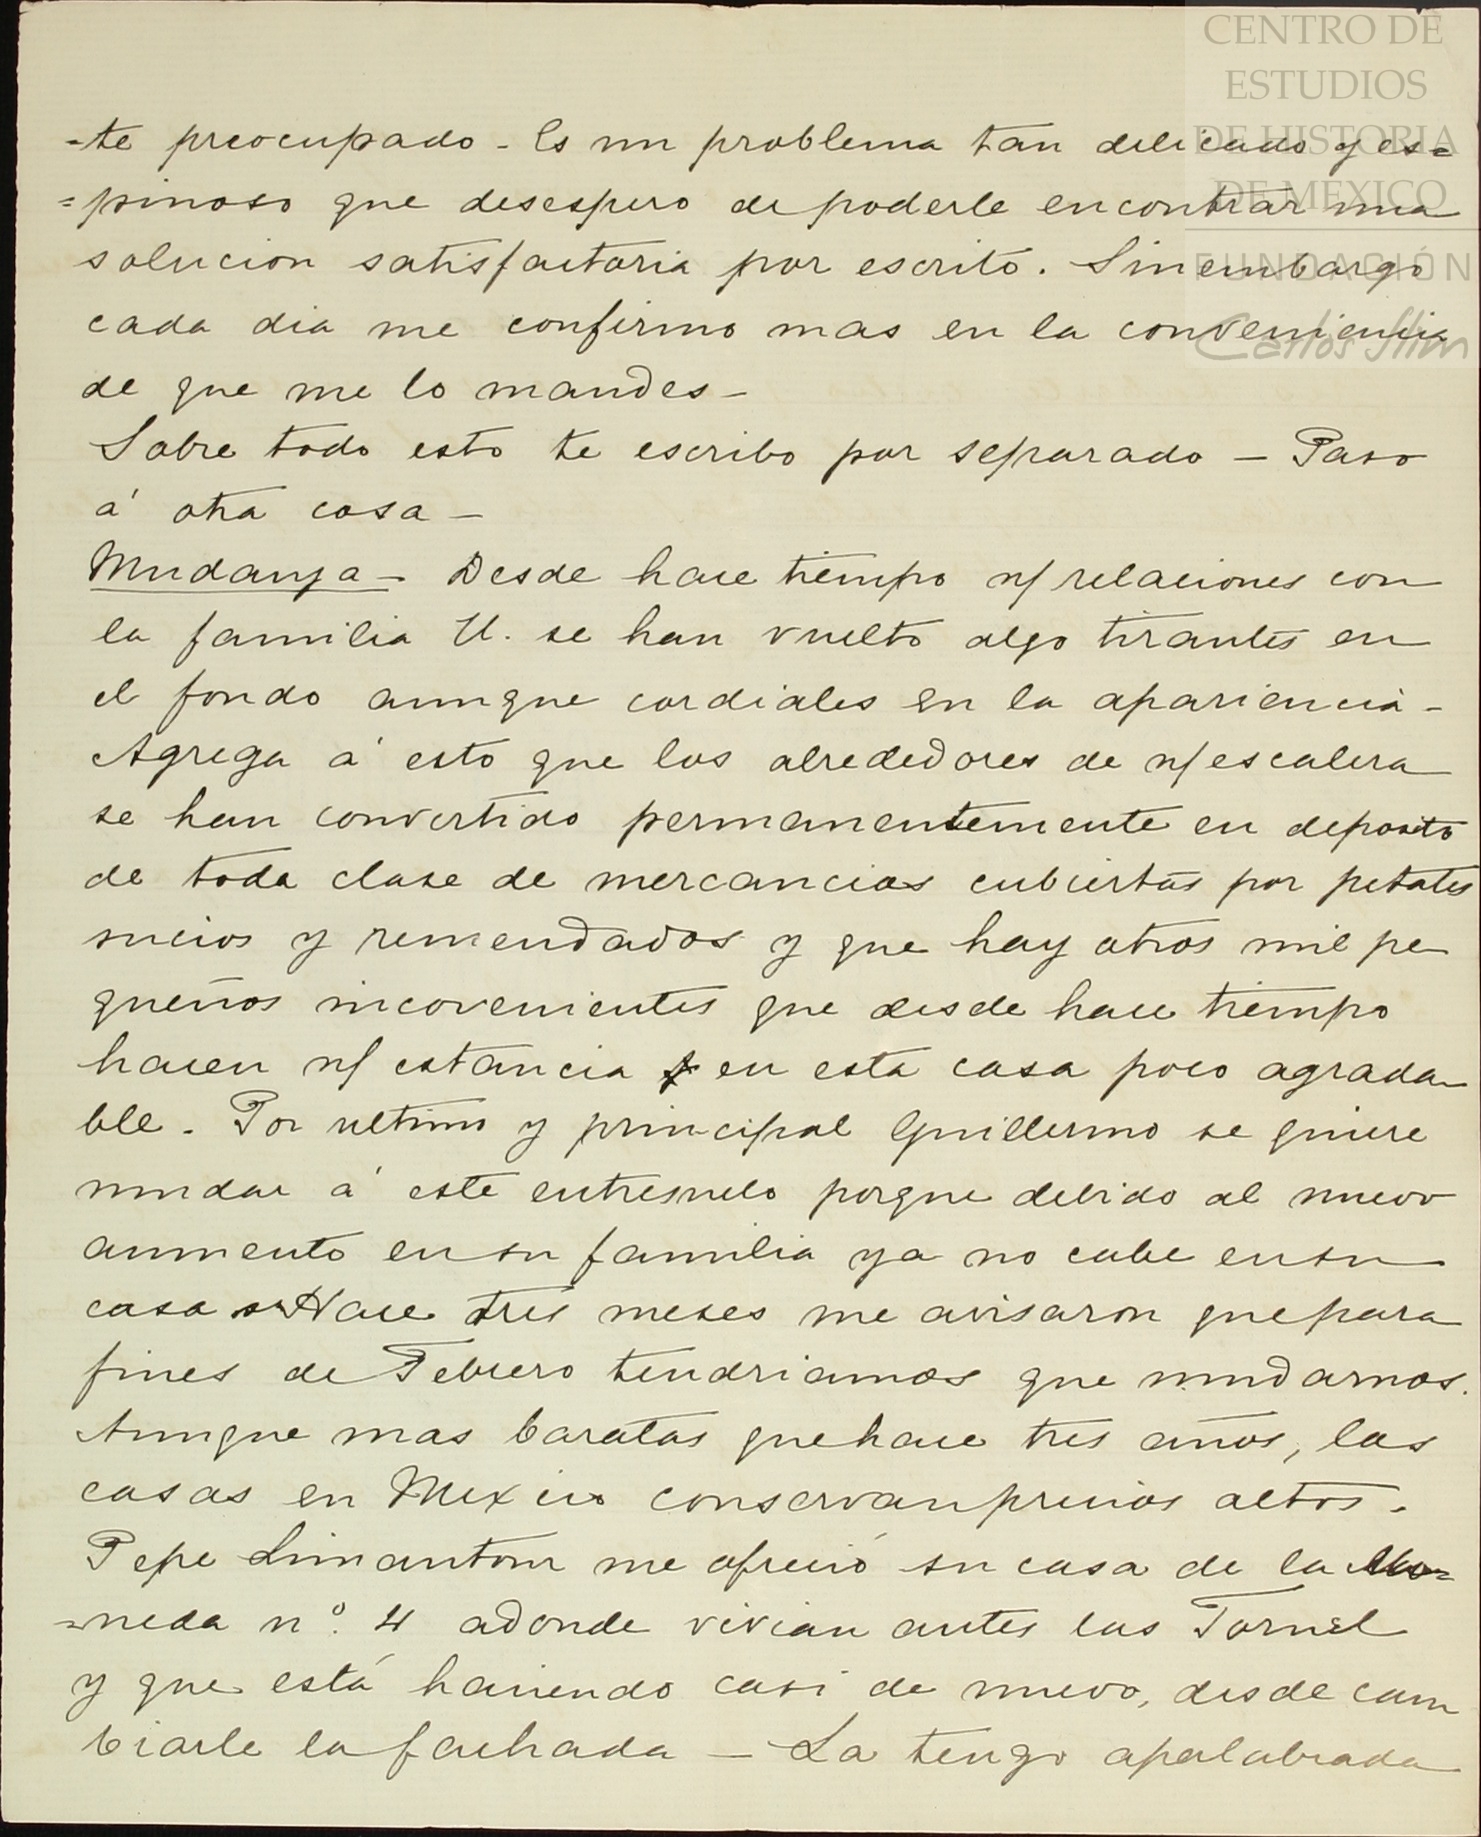 CENTRO DE
ESTUDIOS
DE HISTORIA
DE MÉXICO
FUNDACIÓN
Carlos Slim
-te preocupado - Es un problema tan delicado y es=
=pinoso que desespero de poderle encontrar una
solucion satisfactoria por escrito. Sinembargo
cada dia me confirmo mas en la conveniencia
de que me lo mandes -
Sobre todo esto te escribo por separado - Paso
á otra cosa -
Mudanza - Desde hace tiempo n/ relaciones con
la familia U. se han vuelto algo tirantes en
el fondo aunque cordiales en la apariencia -
Agrega á esto que los alrededores de n/ escalera
se han convertido permanentemente en deposito
de toda clase de mercancias cubiertas por petates
sucios y remendados y que hay otros mil pe
queños incovenientes que desde hace tiempo
hacen n/ estancia en esta casa poco agrada
ble. Por ultimo y principal Guillermo se quiere
mudar á este entresuelo porque debido al nuevo
aumento en su familia ya no cabe en su
casa Hace tres meses me avisaron que para
fines de Febrero tendriamos que mudarnos.
Aunque mas baratas que hace tres años, las
casas en Mexico conservan precios altos.
Pepe Limantour me ofreció su casa de la Mo=
=neda nº. 4 adonde vivian antes los Tornel
y que está haciendo casi de nuevo, desde cam
biarle la fachada - La tengo apalabrada